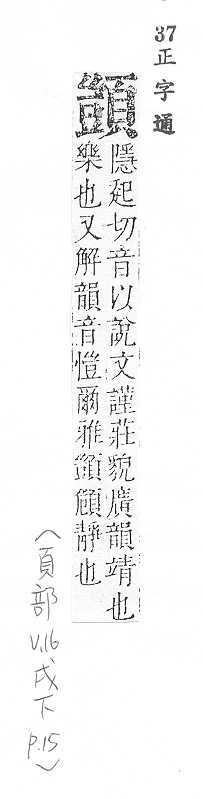 37正字通
顗
隱起切音以說文謹莊貌廣韻靖也
樂也又解韻音愷爾雅顗頠靜也
(頁部V.16戌下P.15)